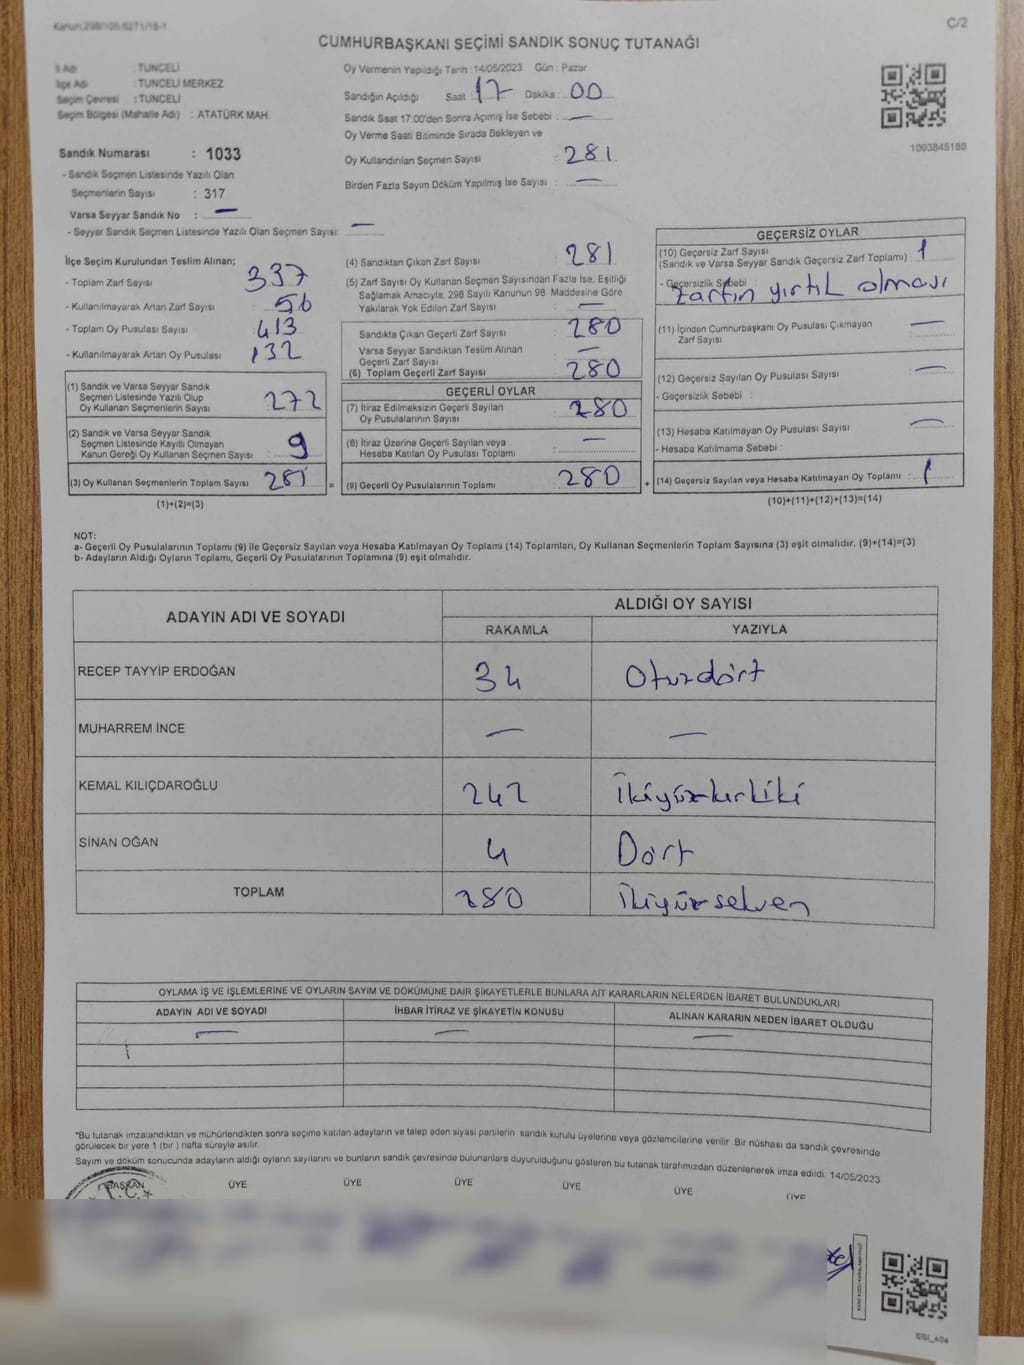 Kanun:298/105 6271/18-1
C/2
CUMHURBAŞKANI SEÇİMİ SANDIK SONUÇ TUTANAĞI
İl Adı : TUNCELİ
İlçe Adı : TUNCELİ MERKEZ
Seçim Çevresi : TUNCELİ
Seçim Bölgesi (Mahalle Adı) : ATATÜRK MAH.
Sandık Numarası : 1033
- Sandık Seçmen Listesinde Yazılı Olan
Seçmenlerin Sayısı : 317
Varsa Seyyar Sandık No : —
- Seyyar Sandık Seçmen Listesinde Yazılı Olan Seçmen Sayısı: —
Oy Vermenin Yapıldığı Tarih : 14/05/2023 Gün : Pazar
Sandığın Açıldığı Saat : 17 Dakika : 00
Sandık Saat 17:00'den Sonra Açımış İse Sebebi : —
Oy Verme Saati Bitiminde Sırada Bekleyen ve
Oy Kullandırılan Seçmen Sayısı : 281
Birden Fazla Sayım Döküm Yapılmış İse Sayısı : —
1093845180
İlçe Seçim Kurulundan Teslim Alınan;
- Toplam Zarf Sayısı : 337
- Kullanılmayarak Artan Zarf Sayısı : 56
- Toplam Oy Pusulası Sayısı : 413
- Kullanılmayarak Artan Oy Pusulası : 132
(1) Sandık ve Varsa Seyyar Sandık
Seçmen Listesinde Yazılı Olup
Oy Kullanan Seçmenlerin Sayısı : 272
(2) Sandık ve Varsa Seyyar Sandık
Seçmen Listesinde Kayıtlı Olmayan
Kanun Gereği Oy Kullanan Seçmen Sayısı : 9
(3) Oy Kullanan Seçmenlerin Toplam Sayısı : 281 =
(1)+(2)=(3)
(4) Sandıktan Çıkan Zarf Sayısı : 281
(5) Zarf Sayısı Oy Kullanan Seçmen Sayısından Fazla İse, Eşitliği
Sağlamak Amacıyla, 298 Sayılı Kanunun 98. Maddesine Göre
Yakılarak Yok Edilen Zarf Sayısı : —
Sandıkta Çıkan Geçerli Zarf Sayısı : 280
Varsa Seyyar Sandıktan Teslim Alınan
Geçerli Zarf Sayısı : —
(6) Toplam Geçerli Zarf Sayısı : 280
GEÇERLİ OYLAR
(7) İtiraz Edilmeksizin Geçerli Sayılan
Oy Pusulalarının Sayısı : 280
(8) İtiraz Üzerine Geçerli Sayılan veya
Hesaba Katılan Oy Pusulası Toplamı : —
(9) Geçerli Oy Pusulalarının Toplamı : 280 +
GEÇERSİZ OYLAR
(10) Geçersiz Zarf Sayısı
(Sandık ve Varsa Seyyar Sandık Geçersiz Zarf Toplamı) : 1
- Geçersizlik Sebebi : Zarfın yırtık olması
(11) İçinden Cumhurbaşkanı Oy Pusulası Çıkmayan
Zarf Sayısı : —
(12) Geçersiz Sayılan Oy Pusulası Sayısı : —
- Geçersizlik Sebebi :
(13) Hesaba Katılmayan Oy Pusulası Sayısı : —
- Hesaba Katılmama Sebebi :
(14) Geçersiz Sayılan veya Hesaba Katılmayan Oy Toplamı : 1
(10)+(11)+(12)+(13)=(14)
NOT:
a- Geçerli Oy Pusulalarının Toplamı (9) ile Geçersiz Sayılan veya Hesaba Katılmayan Oy Toplamı (14) Toplamları, Oy Kullanan Seçmenlerin Toplam Sayısına (3) eşit olmalıdır. (9)+(14)=(3)
b- Adayların Aldığı Oyların Toplamı, Geçerli Oy Pusulalarının Toplamına (9) eşit olmalıdır.
ADAYIN ADI VE SOYADI ALDIĞI OY SAYISI
RAKAMLA YAZIYLA
RECEP TAYYİP ERDOĞAN 34 Otuzdört
MUHARREM İNCE — —
KEMAL KILIÇDAROĞLU 242 İkiyüzkırkiki
SİNAN OĞAN 4 Dört
TOPLAM 280 İkiyüzseksen
OYLAMA İŞ VE İŞLEMLERİNE VE OYLARIN SAYIM VE DÖKÜMÜNE DAİR ŞİKAYETLERLE BUNLARA AİT KARARLARIN NELERDEN İBARET BULUNDUKLARI
ADAYIN ADI VE SOYADI İHBAR İTİRAZ VE ŞİKAYETİN KONUSU ALINAN KARARIN NEDEN İBARET OLDUĞU
— — —
*Bu tutanak imzalandıktan ve mühürlendikten sonra seçime katılan adayların ve talep eden siyasi partilerin sandık kurulu üyelerine veya gözlemcilerine verilir. Bir nüshası da sandık çevresinde
görülecek bir yere 1 (bir ) hafta süreyle asılır.
Sayım ve döküm sonucunda adayların aldığı oyların sayılarını ve bunların sandık çevresinde bulunanlara duyurulduğunu gösteren bu tutanak tarafımızdan düzenlenerek imza edildi. 14/05/2023
BAŞKAN ÜYE ÜYE ÜYE ÜYE ÜYE ÜYE
T.C.